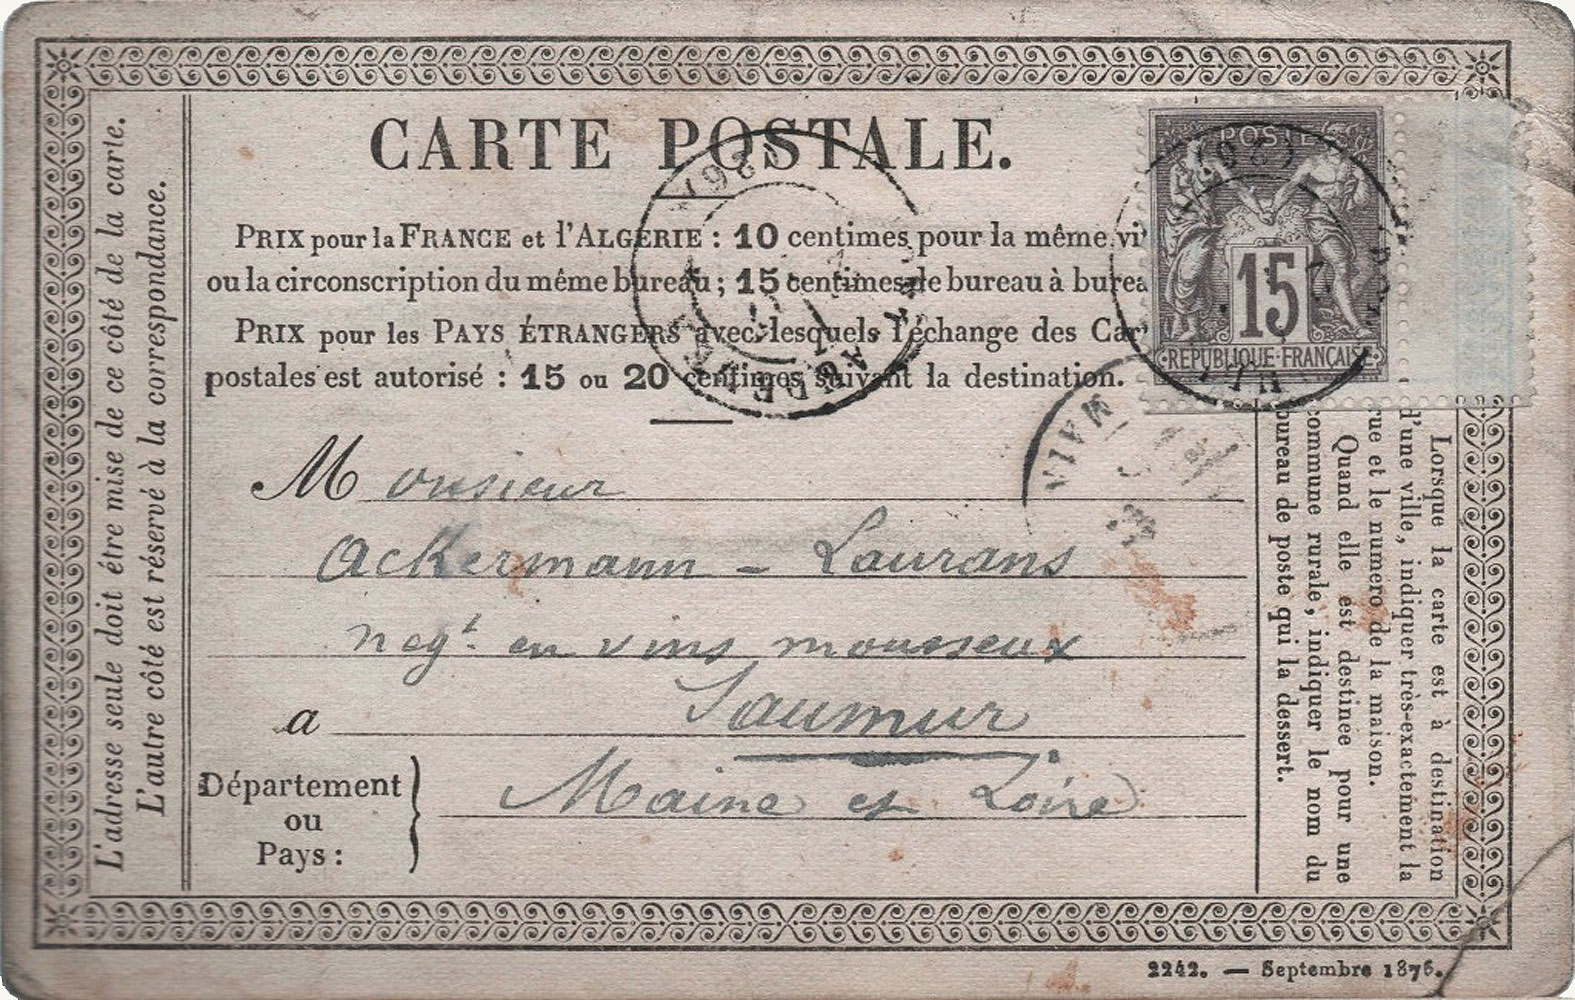 CARTE POSTALE.
PRIX pour la FRANCE et l'ALGÉRIE : 10 centimes pour la même vi
ou la circonscription du même bureau ; 15 centimes de bureau à burea
PRIX pour les PAYS ÉTRANGERS avec lesquels l'échange des Car
postales est autorisé : 15 ou 20 centimes suivant la destination.
POSTE
15
REPUBLIQUE FRANÇAISE
Monsieur
Ackermann - Laurans
negt. en vins mousseux
a Saumur
Département
ou
Pays :
Maine et Loire
L'adresse seule doit être mise de ce côté de la carte.
L'autre côté est réservé à la correspondance.
Lorsque la carte est à destination
d'une ville, indiquer très-exactement la
rue et le numero de la maison.
Quand elle est destinée pour une
commune rurale, indiquer le nom du
bureau de poste qui la dessert.
2242. — Septembre 1876.